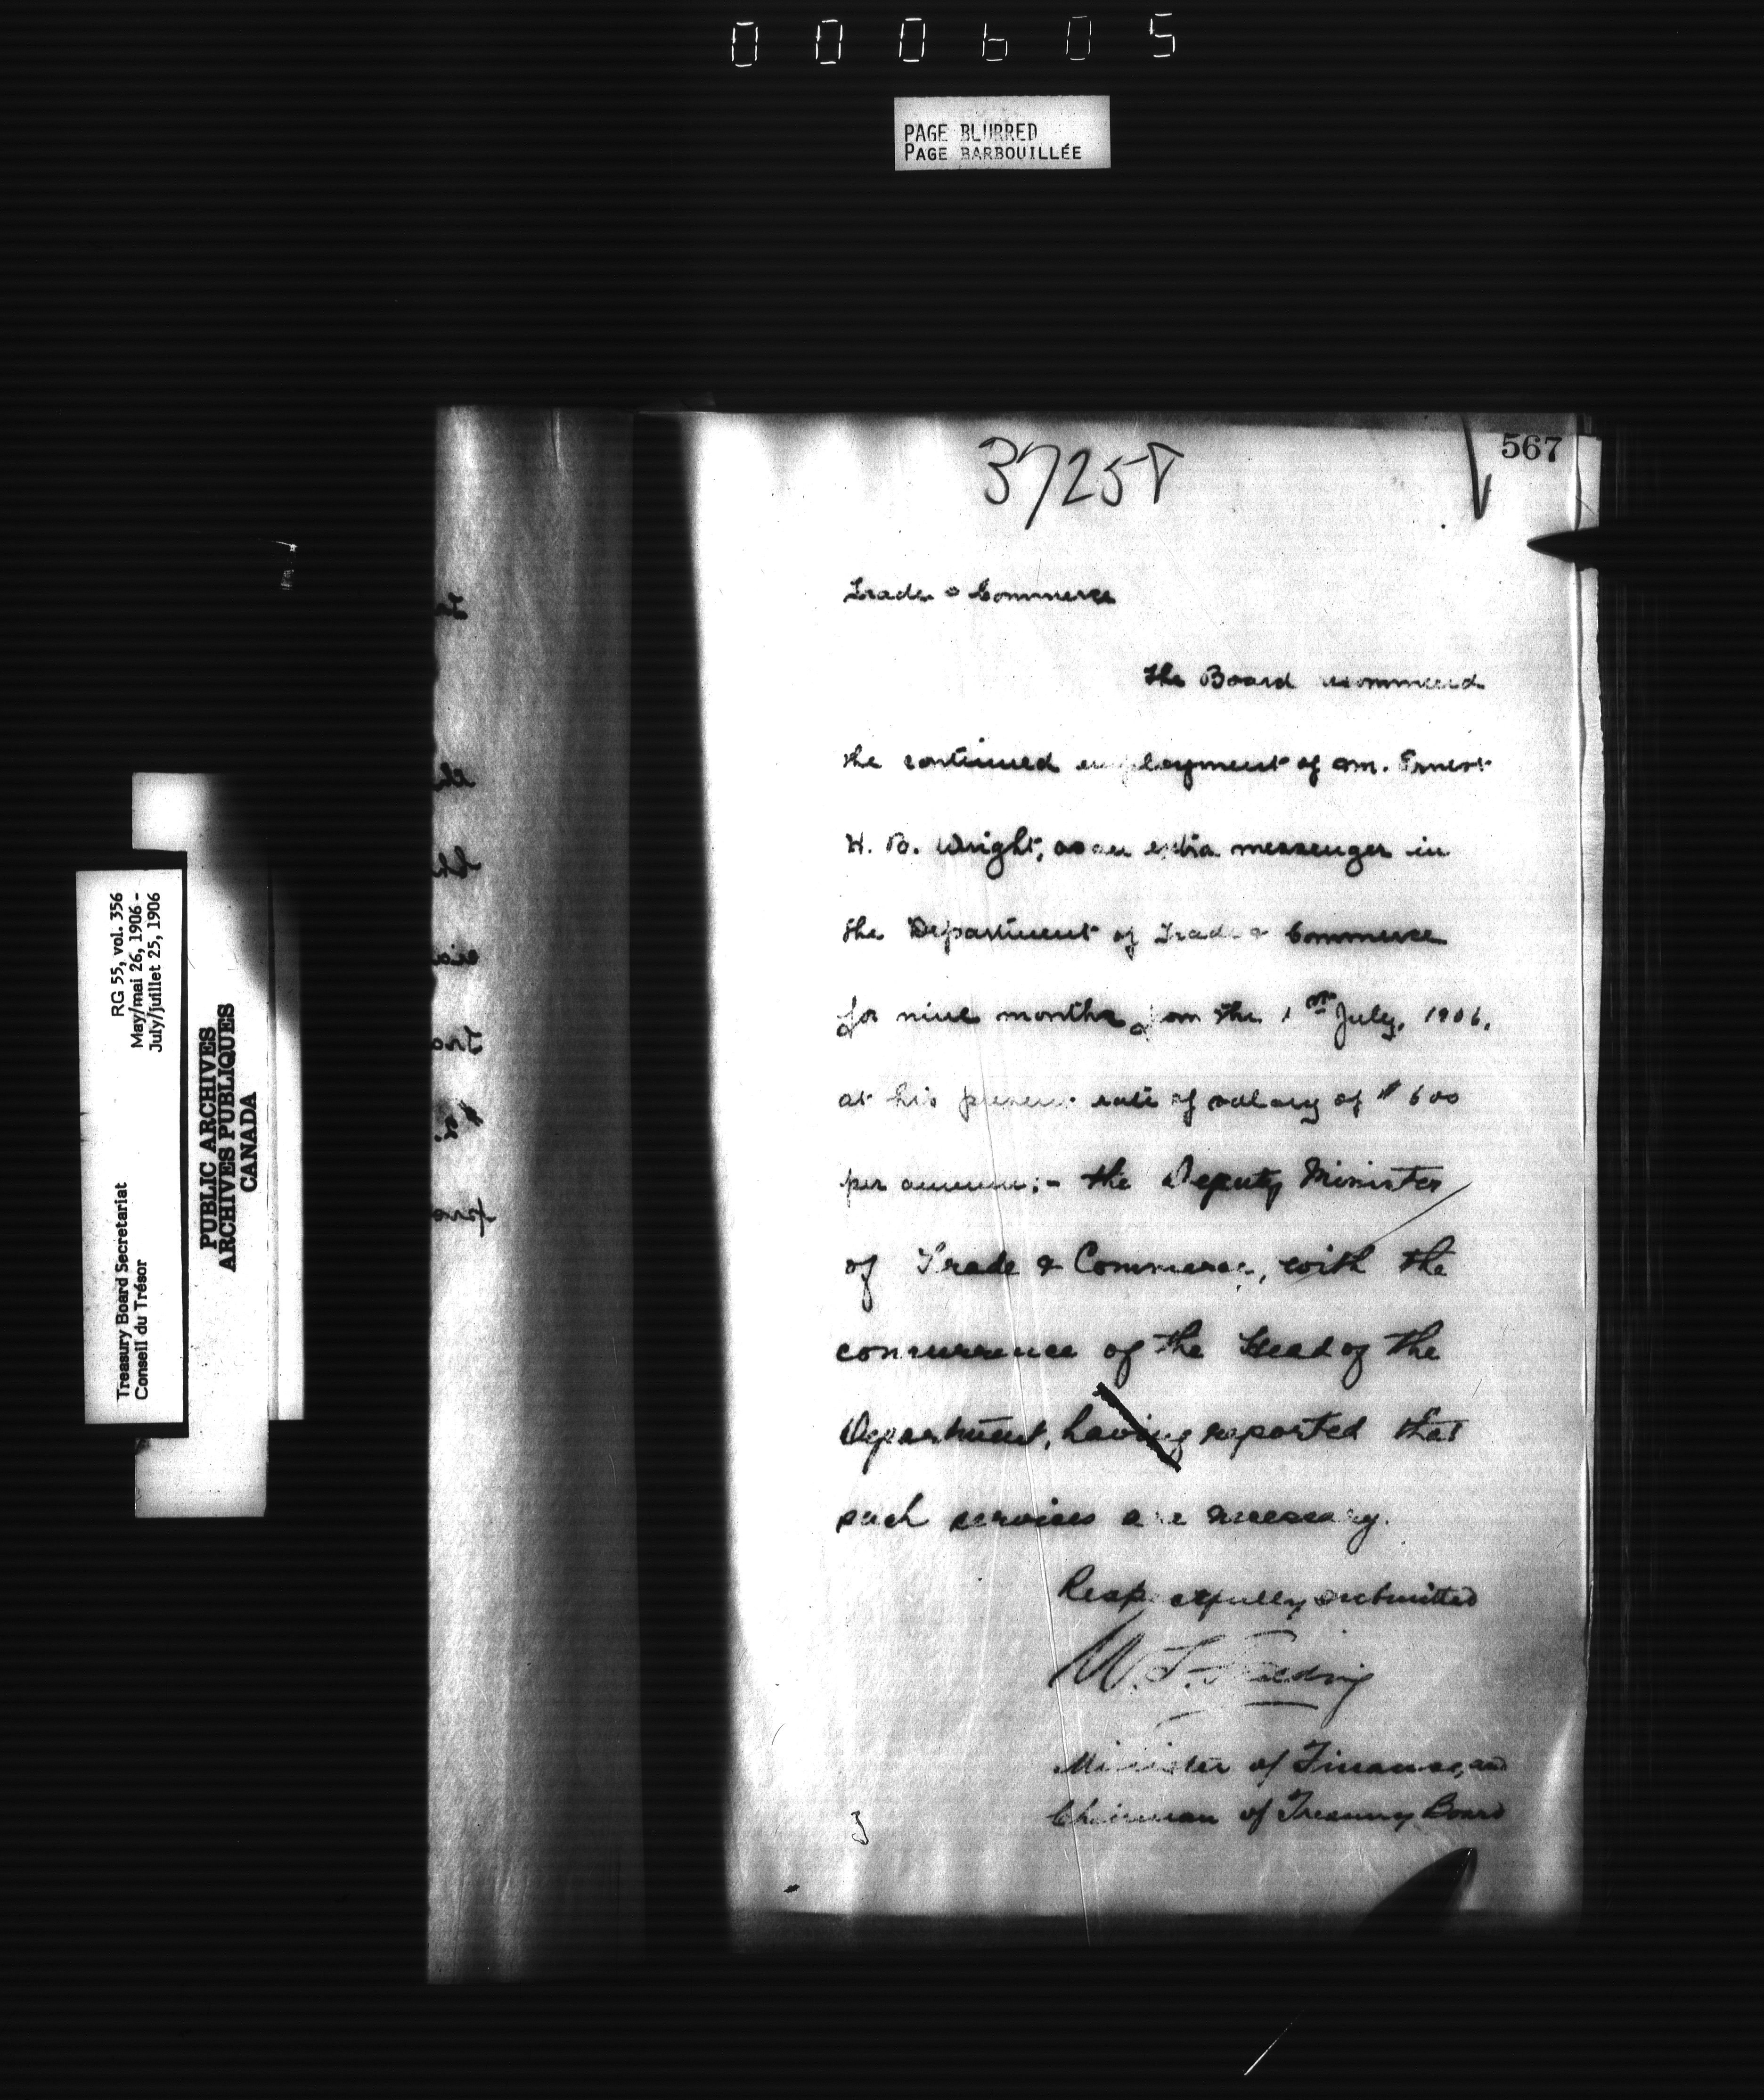 000605
PAGE BLURRED
PAGE BARBOUILLÉE
567
37258
Trade & Commerce
The Board recommend
the continued employment of Mr. Ernest
H. B. Wright, as an extra messenger in
the Department of Trade & Commerce
for nine months from the 1st July, 1906,
at his present rate of salary of $600
per annum;- the Deputy Minister
of Trade & Commerce, with the
concurrence of the Head of the
Department, having reported that
such services are necessary.
Respectfully submitted
W. S. Fielding
Minister of Finance, and
Chairman of Treasury Board
RG 55, vol. 356
May/mai 26, 1906 -
July/juillet 25, 1906
Treasury Board Secretariat
Conseil du Trésor
PUBLIC ARCHIVES
ARCHIVES PUBLIQUES
CANADA